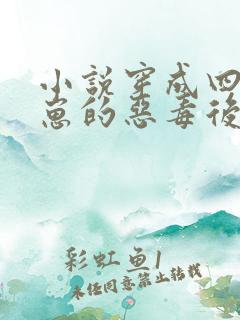 小说穿成四
崽的恶毒後
彩虹鱼1
未经同意禁止转载